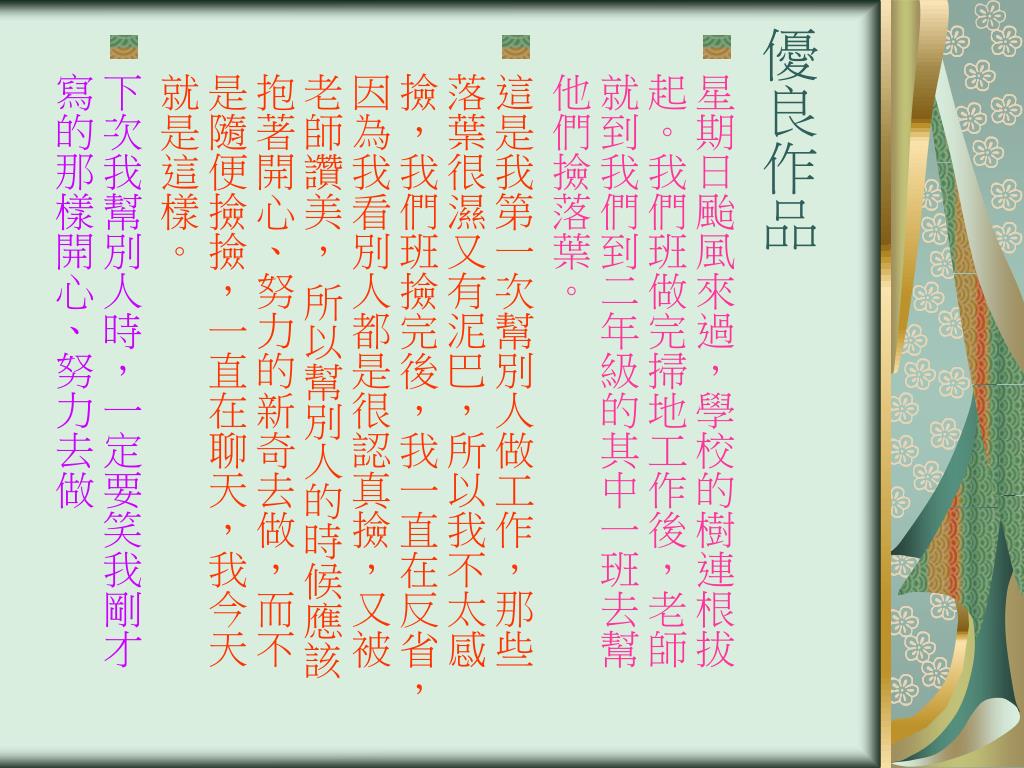 優良作品
星期日颱風來過，學校的樹連根拔
起。我們班做完掃地工作後，老師
就到我們到二年級的其中一班去幫
他們撿落葉。
這是我第一次幫別人做工作，那些
落葉很濕又有泥巴，所以我不太感
撿，我們班撿完後，我一直在反省，
因為我看別人都是很認真撿，又被
老師讚美，所以幫別人的時候應該
抱著開心、努力的新奇去做，而不
是隨便撿撿，一直在聊天，我今天
就是這樣。
下次我幫別人時，一定要笑我剛才
寫的那樣開心、努力去做